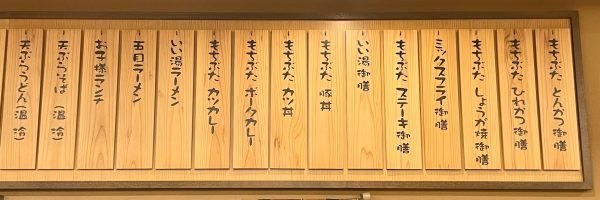 もちぶた とんかつ御膳
もちぶた ひれかつ御膳
もちぶた しょうが焼御膳
ミックスフライ御膳
もちぶた ステーキ御膳
いい湯御膳
もちぶた 豚丼
もちぶた カツ丼
もちぶた ポークカレー
もちぶた カツカレー
いい湯ラーメン
五目ラーメン
お子様ランチ
天ぷらそば（温 冷）
天ぷらうどん（温 冷）